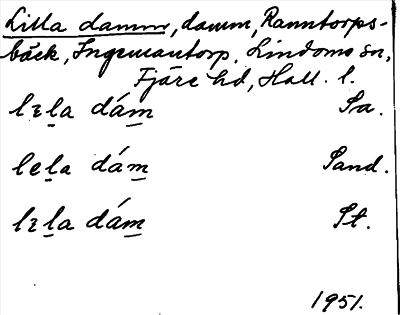 Lilla damm, damm, Ranntorps-
bäck, Ingemantorp, Lindoms sn,
Fjäre hd, Hall. l.
lɛla dám Sa.
lela dám Sand.
lɛla dám St.
1951.